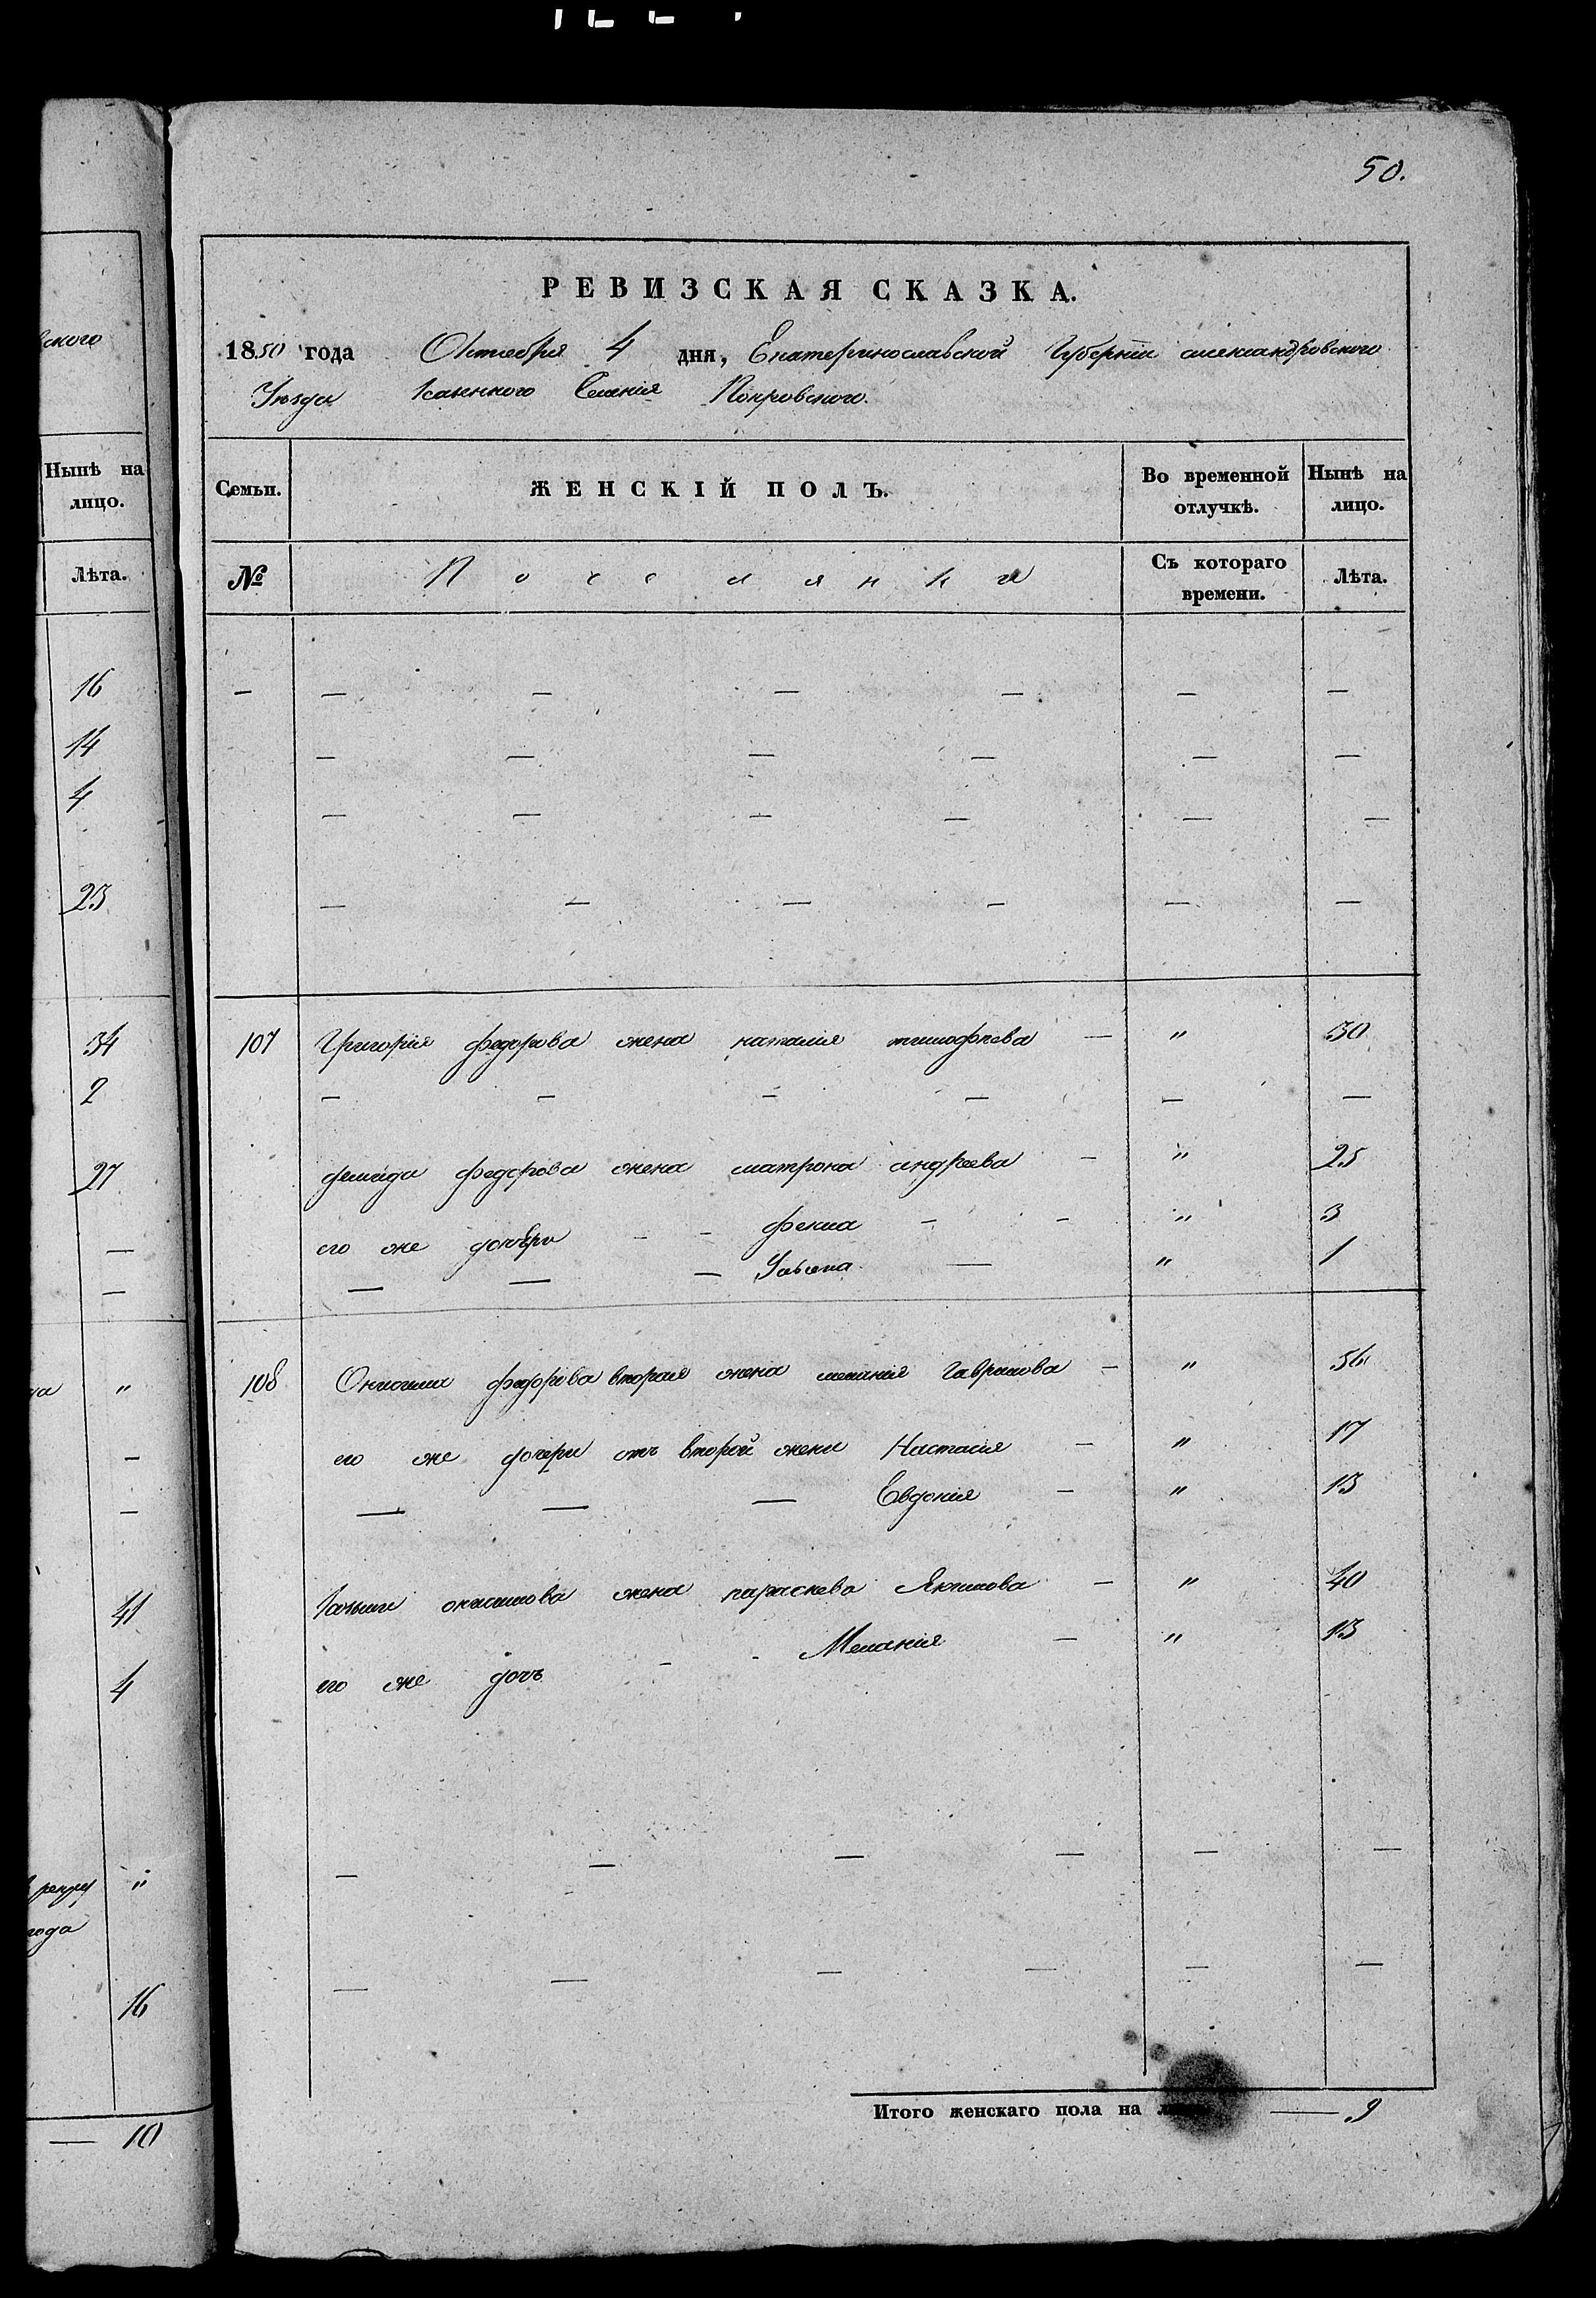 50.
ского
РЕВИЗСКАЯ СКАЗКА.
1850 года Октября 4 дня, Екатеринославской Губерніи александровского
Уѣзда Казенного Селенія Покровского.
Нынѣ на лицо.
Лѣта.
Семьи. ЖЕНСКІЙ ПОЛЪ. Во временной отлучкѣ. Нынѣ на лицо.
№ Поселянки Съ котораго времени. Лѣта.
16 — — — — — — —
14 — — — — — —
4 — — — — — —
23 — — — — — —
34 107 Григорія федорова жена наталія тимофѣева — " 30
2 — — — — — —
27 демида федорова жена матрона андреева — " 25
— его же дочери - - фекла - - " 3
— — — — Уліяна — " 1
на " 108 Онисима федорова вторая жена меланія Гаврилова — " 56
— его же дочери отъ второй жени Настасія — " 17
— — — — Евдокія — " 13
41 онисимова жена параскева Якимова — " 40
4 его же дочь - - Меланія — " 13
рекру "
года
— — — — — —
16 — — — — — —
Итого женскаго пола на — 9
— 10